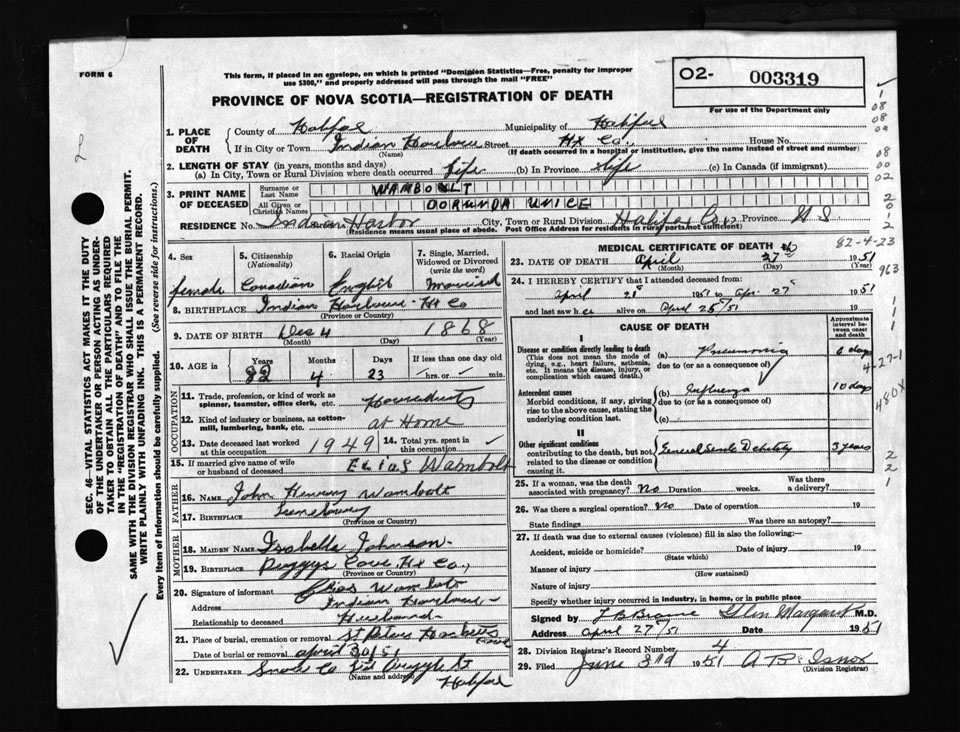 FORM 6
This form, if placed in an envelope, on which is printed "Dominion Statistics—Free, penalty for improper
use $300," and properly addressed will pass through the mail "FREE"
O2- 003319
For use of the Department only
PROVINCE OF NOVA SCOTIA—REGISTRATION OF DEATH
1. PLACE OF DEATH
County of Halifax Municipality of Halifax
If in City or Town Indian Harbour Street Hx Co. House No.
(Name) (If death occurred in a hospital or institution, give the name instead of street and number)
2. LENGTH OF STAY (in years, months and days)
(a) In City, Town or Rural Division where death occurred life (b) In Province life (c) In Canada (if immigrant)
3. PRINT NAME OF DECEASED
Surname or Last Name WAMBOLT
All Given or Christian Names DORINDA UNICE
RESIDENCE No. Indian Harbor City, Town or Rural Division Halifax Co. Province N S
(Residence means usual place of abode. Post Office Address for residents in rural parts not sufficient)
4. Sex female
5. Citizenship (Nationality) Canadian
6. Racial Origin English
7. Single, Married, Widowed or Divorced (write the word) Married
8. BIRTHPLACE Indian Harbour Hx Co
(Province or Country)
9. DATE OF BIRTH Dec 4 1868
(Month) (Day) (Year)
10. AGE in Years 82 Months 4 Days 23 If less than one day old
hrs. or min.
OCCUPATION
11. Trade, profession, or kind of work as spinner, teamster, office clerk, etc. Houseduties
12. Kind of industry or business, as cotton-mill, lumbering, bank, etc. at Home
13. Date deceased last worked at this occupation 1949 14. Total yrs. spent in this occupation
15. If married give name of wife or husband of deceased Elias Wambolt
FATHER
16. Name John Henery Wambolt
17. Birthplace Lunenburg
(Province or Country)
MOTHER
18. Maiden Name Isabella Johnson
19. Birthplace Peggys Cove, Hx Co.
(Province or Country)
20. Signature of informant Elias Wambolt
Address Indian Harbour
Relationship to deceased Husband
21. Place of burial, cremation or removal St Peters Hacketts Cove
Date of burial or removal april 30/51
22. UNDERTAKER Snow Co Ltd Argyle St
(Name and address) Halifax
MEDICAL CERTIFICATE OF DEATH
82-4-23
23. DATE OF DEATH April 27 1951
(Month) (Day) (Year)
24. I HEREBY CERTIFY that I attended deceased from:
april 21 1951 to apr. 27 1951
and last saw her alive on april 25/51
CAUSE OF DEATH
Approximate interval between onset and death
I
Disease or condition directly leading to death
(This does not mean the mode of dying, e.g., heart failure, asthenia, etc. It means the disease, injury, or complication which caused death.)
(a) Pneumonia 6 days
due to (or as a consequence of)
Antecedent causes
Morbid conditions, if any, giving rise to the above cause, stating the underlying condition last.
(b) Influenza 10 days
due to (or as a consequence of)
(c)
II
Other significant conditions
contributing to the death, but not related to the disease or condition causing it.
General Senile Debility 3 years
4-27-1
480X
25. If a woman, was the death associated with pregnancy? No Duration weeks. Was there a delivery?
26. Was there a surgical operation? No Date of operation 19
State findings Was there an autopsy?
27. If death was due to external causes (violence) fill in also the following:
Accident, suicide or homicide? Date of injury 19
(State which)
Manner of injury
(How sustained)
Nature of injury
Specify whether injury occurred in industry, in home, or in public place
Signed by Glen Margaret M.D.
Address april 27/51 Date 1951
28. Division Registrar's Record Number 4
29. Filed June 3rd 1951
(Division Registrar)
SEC. 46—VITAL STATISTICS ACT MAKES IT THE DUTY
OF THE UNDERTAKER OR PERSON ACTING AS UNDER-
TAKER TO OBTAIN ALL THE PARTICULARS REQUIRED
IN THE "REGISTRATION OF DEATH" AND TO FILE THE
SAME WITH THE DIVISION REGISTRAR WHO SHALL ISSUE THE BURIAL PERMIT.
WRITE PLAINLY WITH UNFADING INK. THIS IS A PERMANENT RECORD.
Every item of information should be carefully supplied. (See reverse side for instructions.)
1
08
08
09
08
00
02
2
0
1
2
963
1
1
1
2
2
1